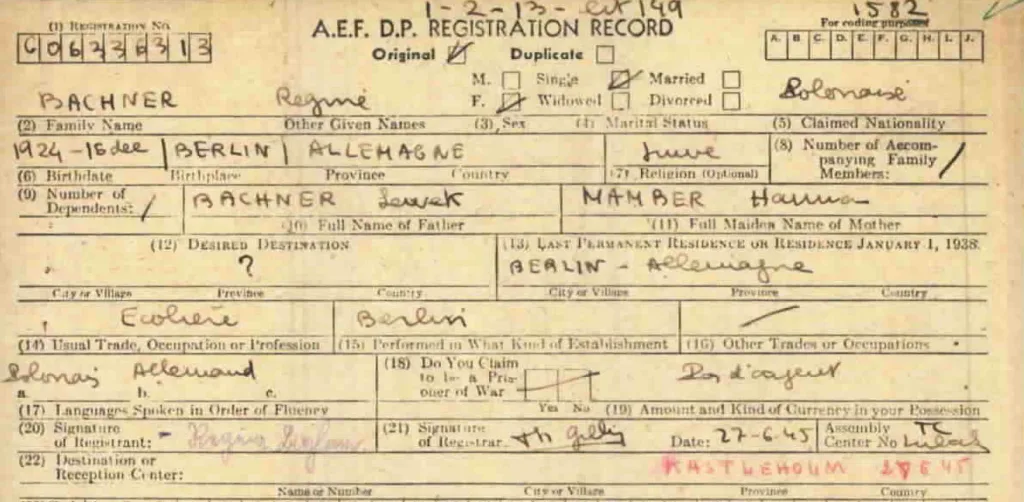 1-2-13- 149
1582
(1) REGISTRATION NO.
A.E.F. D.P. REGISTRATION RECORD
For coding purposes
G06236313
Original ☑ Duplicate ☐
A. B. C. D. E. F. G. H. I. J.
M. ☐ Single ☑ Married ☐
BACHNER Reginé F. ☑ Widowed ☐ Divorced ☐ Polonaise
(2) Family Name Other Given Names (3) Sex (4) Marital Status (5) Claimed Nationality
1924-16 dec BERLIN ALLEMAGNE Juive (8) Number of Accompanying Family Members: /
(6) Birthdate Birthplace Province Country (7) Religion (Optional)
(9) Number of Dependents: / BACHNER MAMBER Hanna
(10) Full Name of Father (11) Full Maiden Name of Mother
(12) DESIRED DESTINATION (13) LAST PERMANENT RESIDENCE OR RESIDENCE JANUARY 1, 1938.
? BERLIN - Allemagne
City or Village Province Country City or Village Province Country
Ecolière Berlin /
(14) Usual Trade, Occupation or Profession (15) Performed in What Kind of Establishment (16) Other Trades or Occupations
Polonais Allemand (18) Do You Claim to be a Prisoner of War Pas d'argent
a. b. c.
(17) Languages Spoken in Order of Fluency Yes No (19) Amount and Kind of Currency in your Possession
(20) Signature of Registrant: (21) Signature of Registrar. Date: 27-6-45 Assembly Center No TC
(22) Destination or Reception Center: 45
Name or Number City or Village Province Country